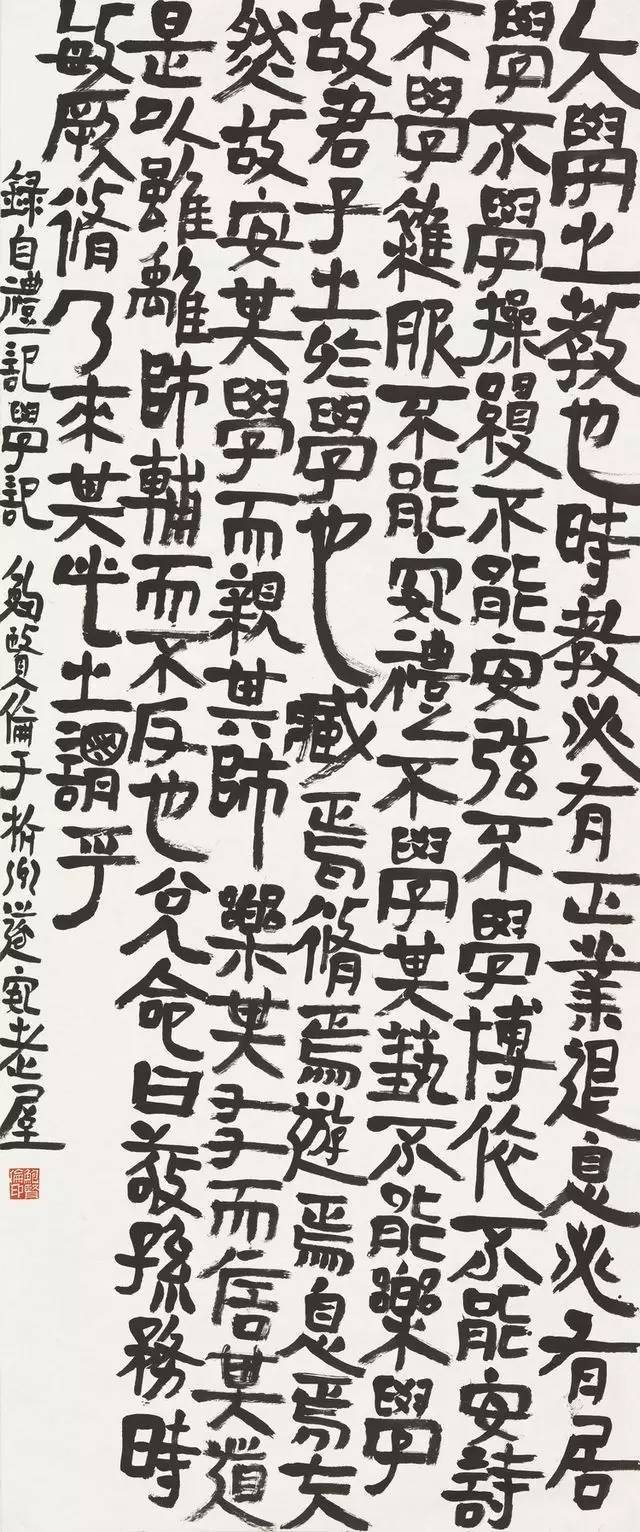 大學之教也時教必有正業退息必有居
學不學操縵不能安弦不學博依不能安詩
不學雜服不能安禮不學其藝不能樂學
故君子之於學也藏焉脩焉遊焉息焉夫
然故安其學而親其師樂其友而信其道
是以雖離師輔而不反也兌命曰敬孫務時
敏厥脩乃來其此之謂乎
錄自禮記學記 鮑賢倫于杭州老屋
鮑賢倫印